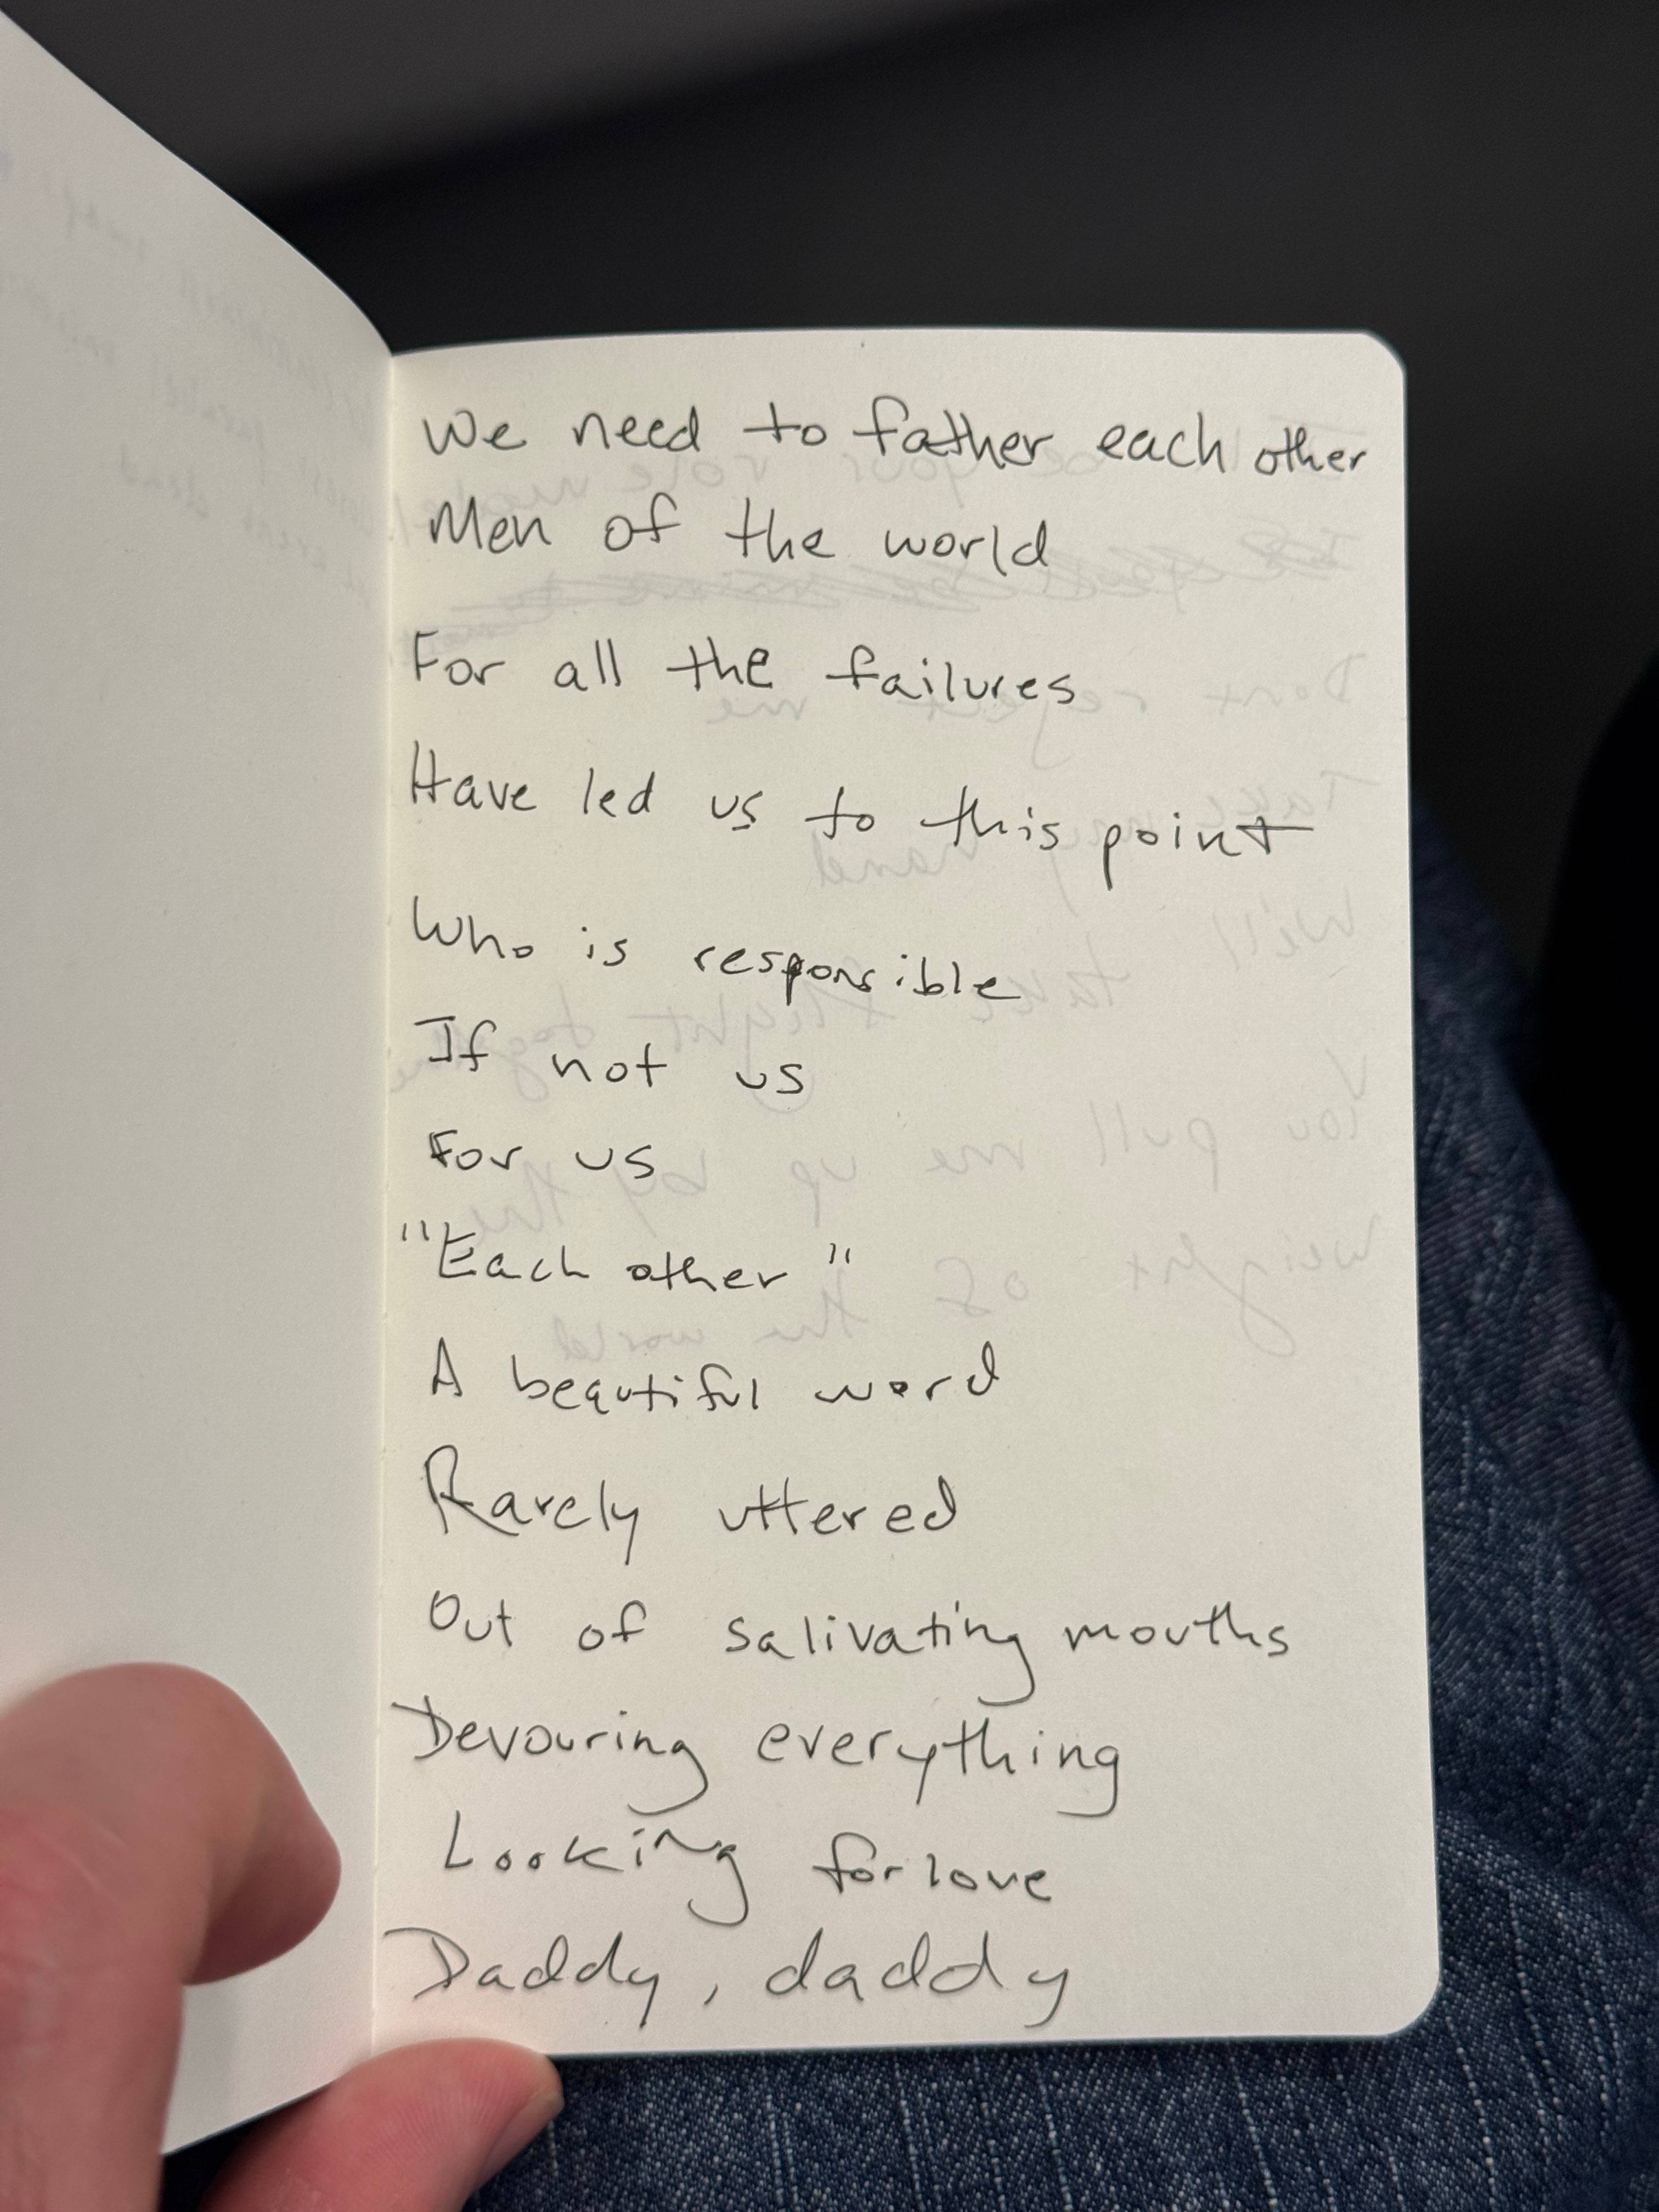 We need to father each other
Men of the world
For all the failures
Have led us to this point
Who is responsible
If not us
For us
"Each other"
A beautiful word
Rarely uttered
Out of salivating mouths
Devouring everything
Looking for love
Daddy, daddy